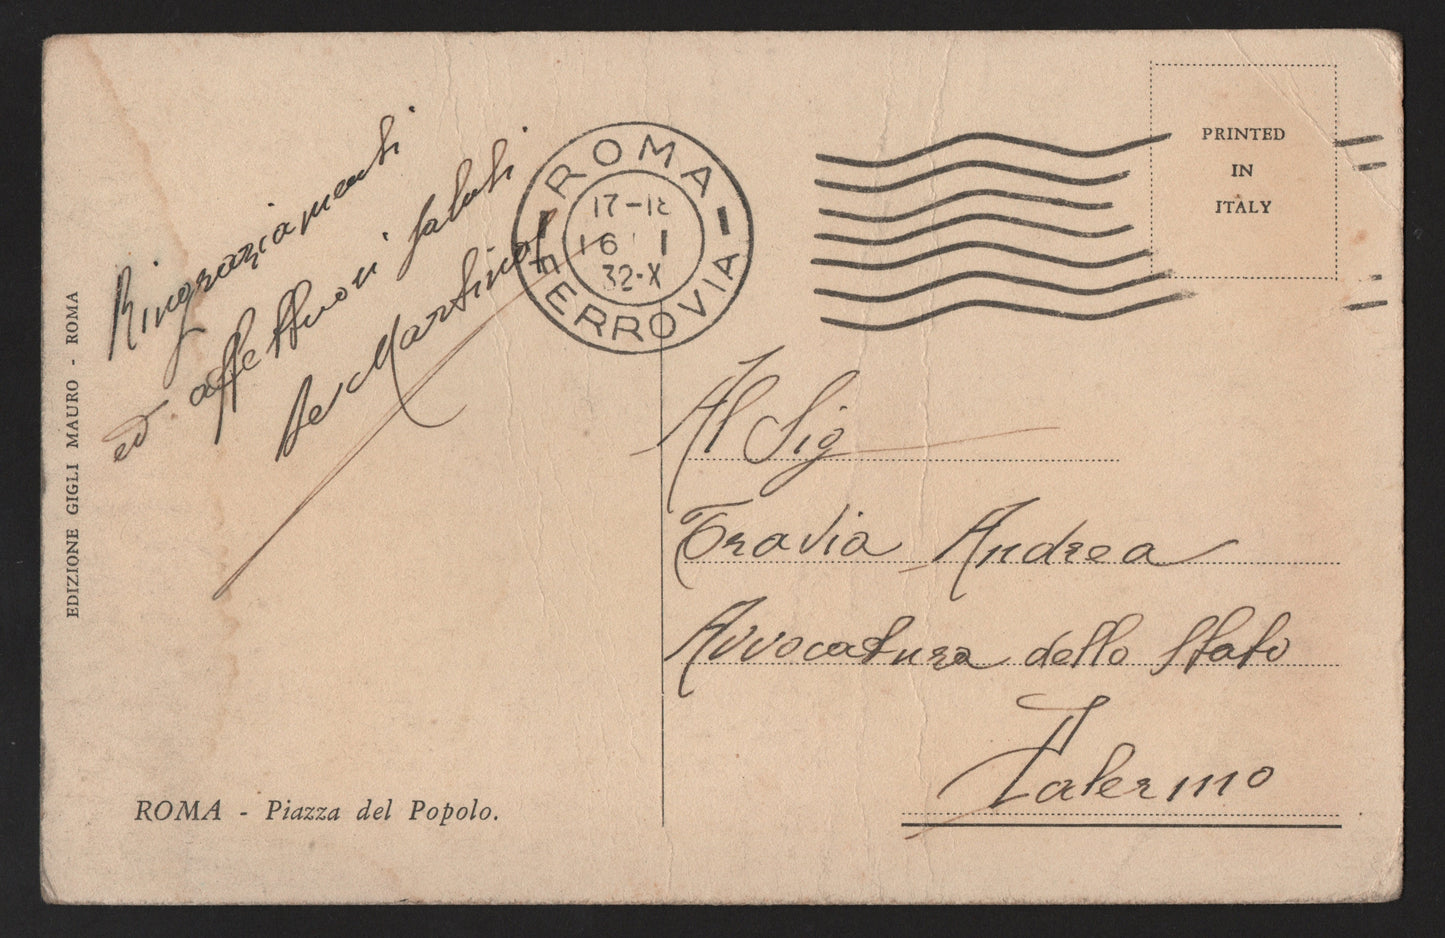 Ringraziamenti
ed affettuosi saluti
De Martino
ROMA
17-18
16 1
32·X
FERROVIA
PRINTED
IN
ITALY
Al Sig
Travia Andrea
Avvocatura dello Stato
Palermo
EDIZIONE GIGLI MAURO - ROMA
ROMA - Piazza del Popolo.